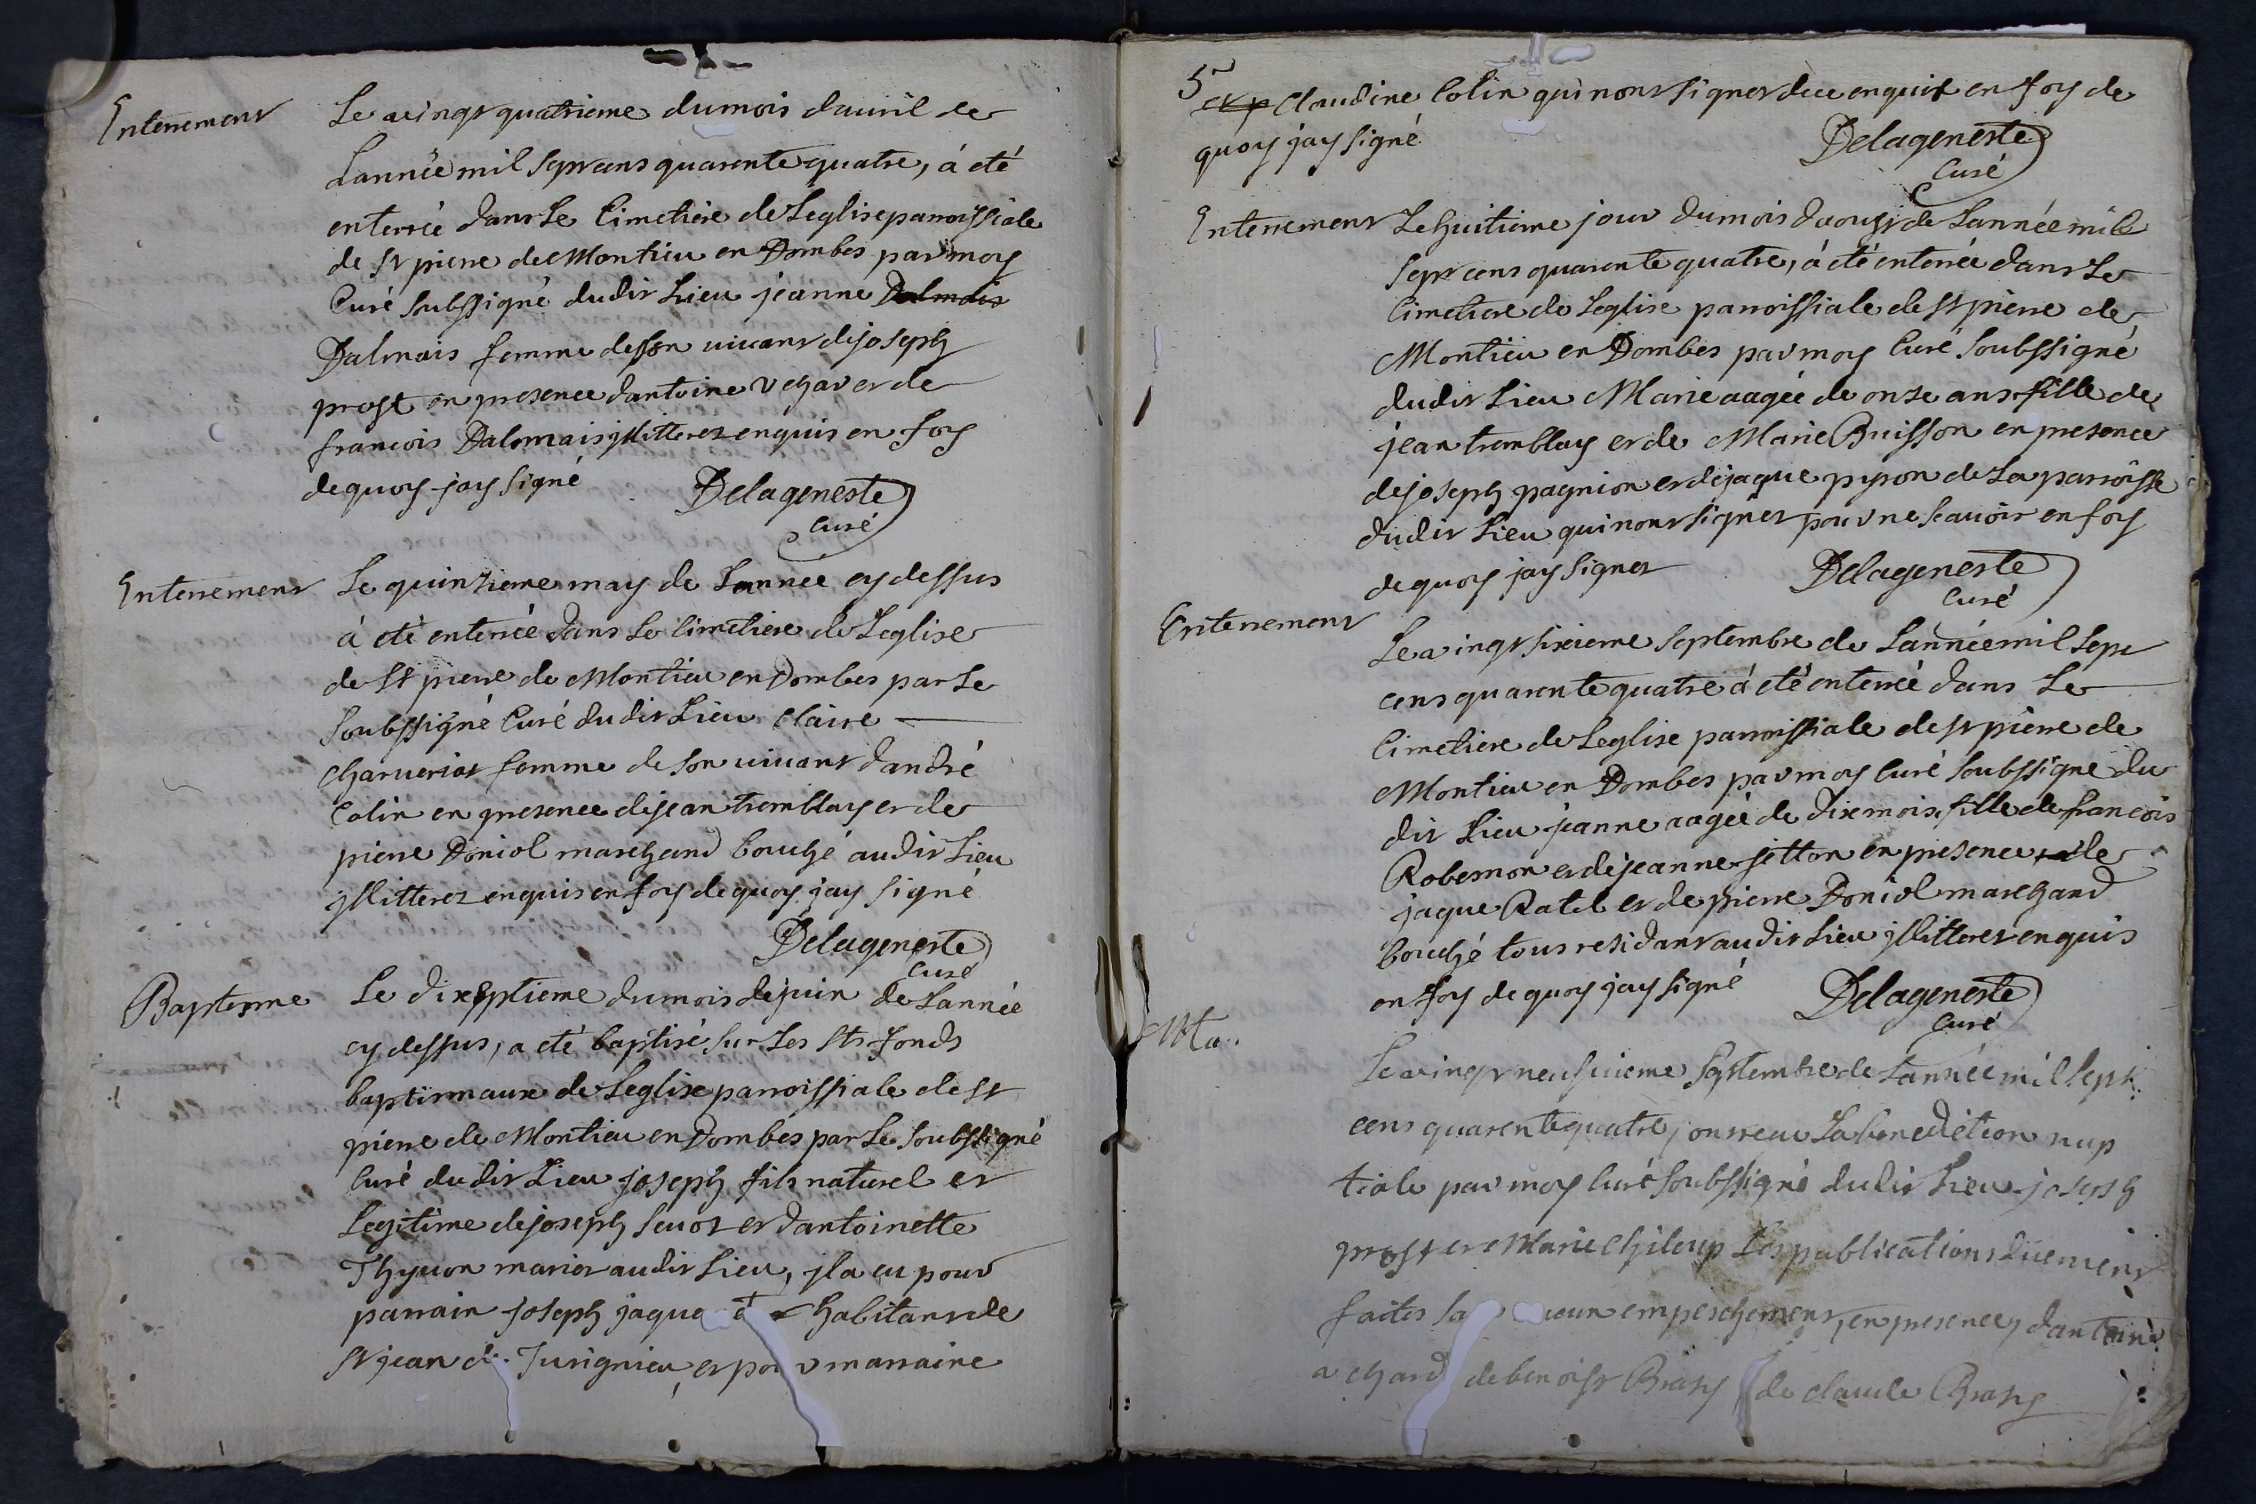 Enterrement
Le vingt quatrieme du mois davril de
Lannée mil sept cens quarente quatre, á eté
enterreé dans Le Cimetiere de Leglise parroissiale
de St pierre de Montieu en Dombes par moy
Curé soubssigné dudit Lieu jeanne Dalmais
Dalmais femme de son vivant de joseph
prost en presence dantoine et de
francois Dalmais jllitterez enquis en foy
de quoy jay signé
Delageneste
Curé
Enterrement
Le quinzieme may de Lannée cy dessus
á eté enterreé dans Le Cimetiere de Leglise
de St pierre de Montieu en Dombes par Le
soubssigné Curé dudit Lieu Claire
charveriat femme de son vivant dandré
Colin en presence de jean tremblay et de
pierre Doniol marchand bouché audit Lieu
jllitterez enquis en foy de quoy jay signé
Delageneste
Curé
Baptesme
Le dixseptieme du mois de juin de Lannée
cy dessus, a eté baptisé sur Les Sts fonds
baptismaux de Leglise parroissiale de St
pierre de Montieu en Dombes par Le soubssigné
Curé dudit Lieu joseph fils naturel et
Legitime de joseph et dantoinette
Thyvon mariez audit Lieu, jl a eu pour
parrain joseph jaque habitant de
St jean de Turignieu, et pour marraine
5
et p Claudine Colin qui nont signer de ce enquis en foy de
quoy jay signé
Delageneste
Curé
Enterrement
Le huitieme jour du mois daoust de Lannée mil
sept cens quarente quatre, á eté enterrée dans Le
Cimetiere de Leglise parroissiale de St pierre de
Montieu en Dombes par moy Curé soubssigné
dudit Lieu Marie aagée de onse ans fille de
jean tremblay et de Marie Buisson en presence
de joseph pagnion et de jaque pyron de La parroisse
dudit Lieu qui nont signer pour ne scavoir en foy
de quoy jay signer
Delageneste
Curé
Enterrement
Le vingt sixieme septembre de Lannée mil sept
cens quarente quatre á eté enterreé dans Le
Cimetiere de Leglise parroissiale de St pierre de
Montieu en Dombes par moy Curé soubssigné du
dit Lieu jeanne aagée de dix mois fille de francois
Robesmon et de jeanne jitton en presence de
jaque Ratel et de pierre Doniol marchand
bouché tous residants audit Lieu jllitterez enquis
en foy de quoy jay signé
Delageneste
Curé
Ma
Le vingt neufvieme Septembre de Lannée mil sept
cens quarente quatre, ont recu La benediction nup
tiale par moy Curé soubssigné dudit Lieu joseph
prost et Marie Chiloup Les publications düement
faites empeschement, en presence, dantoine
achard de benoist Brasy de claude Brasy